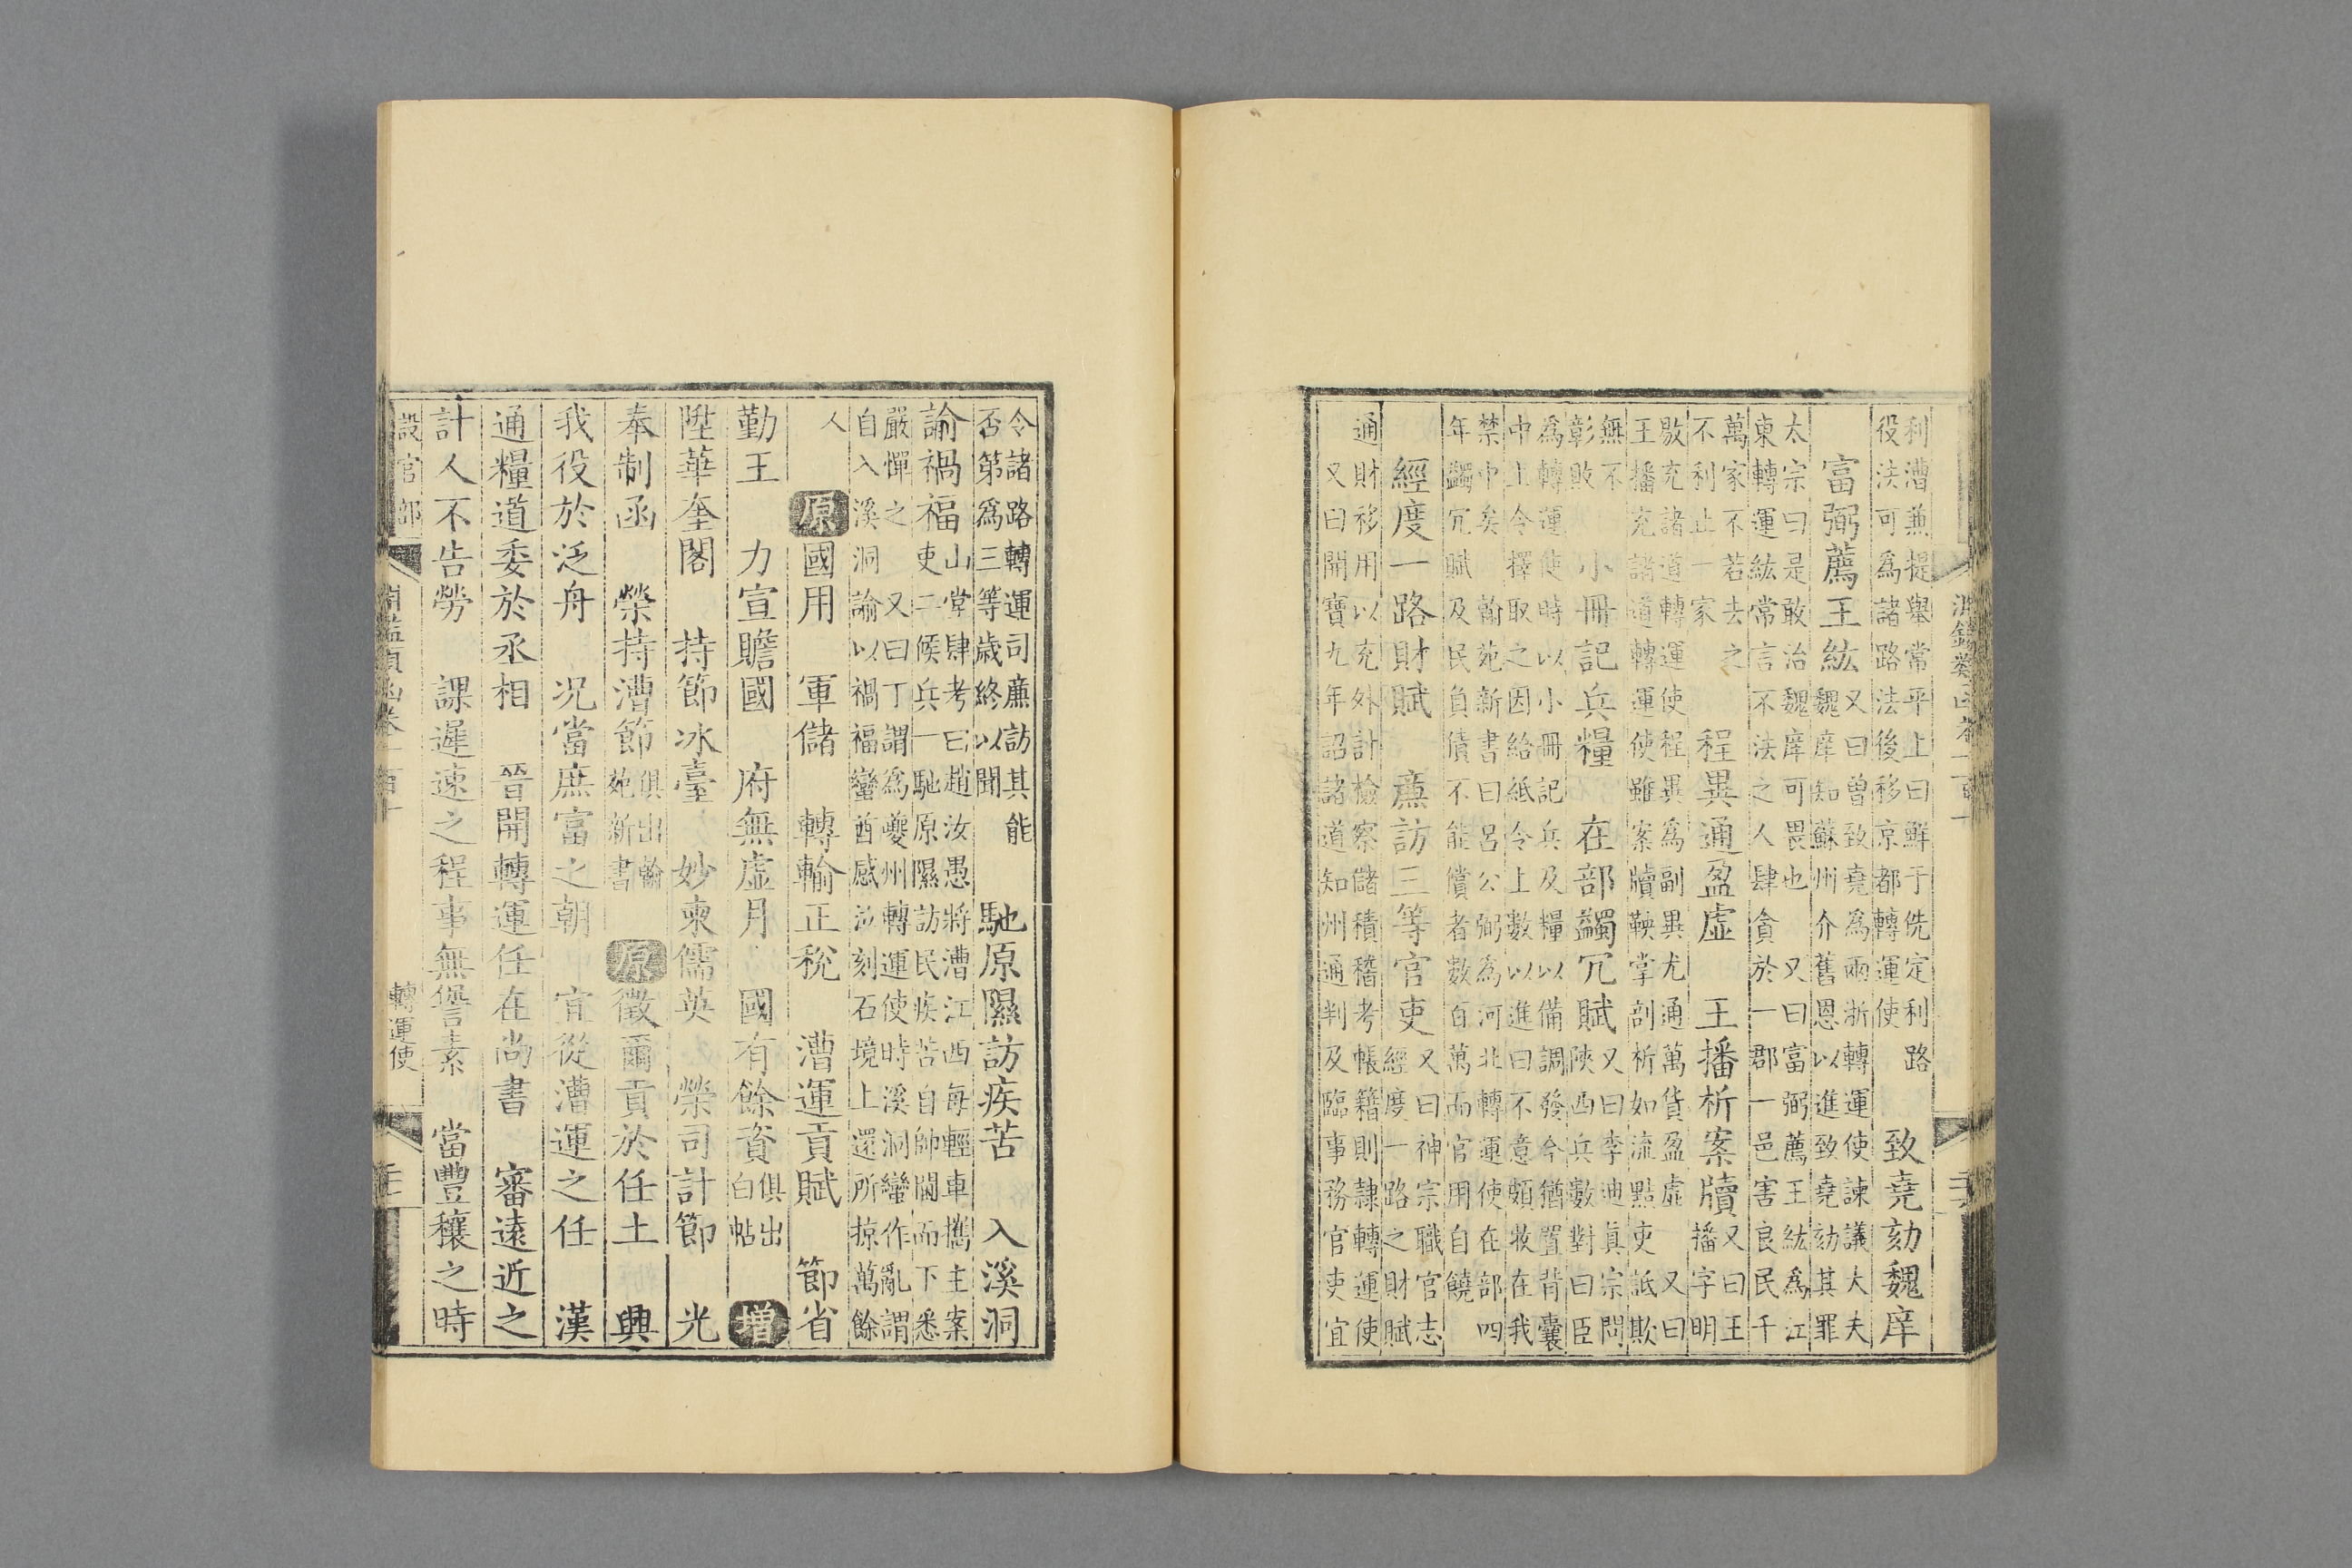 利漕兼提舉常平上曰鮮于侁定利路
役法可爲諸路法後移京都轉運使
致堯劾魏庠
富弼薦王紘
又曰曾致堯爲兩浙轉運使諫議大夫
魏庠知蘇州介舊恩以進致堯劾其罪
太宗曰是敢治魏庠可畏也又曰富弼薦王紘爲江
東轉運紘常言不法之人肆貪於一郡一邑害良民千
萬家不若去之
不利止一家
程異通盈虛
王播析案牘
又曰王
播字明
敭充諸道轉運使程異爲副異尤通萬貨盈虛又曰
王播充諸道轉運使雖案牘鞅掌剖析如流黠吏詆欺
無不
彰敗
小冊記兵糧
在部蠲冗賦
又曰李迪眞宗問
陝西兵數對曰臣
爲轉運使時以小冊記兵及糧以備調發今猶置背囊
中上令擇取之因給紙令上數以進曰不意頗牧在我
禁中矣翰苑新書曰呂公弼爲河北轉運使在部四
年蠲冗賦及民負債不能償者數百萬而官用自饒
經度一路財賦
廉訪三等官吏
又曰神宗職官志
經度一路之財賦
通財移用以充外計檢察儲積稽考帳籍則隷轉運使
又曰開寶九年詔諸道知州通判及臨事務官吏宜
淵鑑類函卷一百十
令諸路轉運司廉訪其能
否第爲三等歲終以聞
馳原隰訪疾苦
入溪洞
諭禍福
山堂肆考曰趙汝愚將漕江西每輕車攜主案
吏二候兵一馳原隰訪民疾苦自帥閫而下悉
嚴憚之又曰丁謂爲夔州轉運使時溪洞蠻作亂謂
自入溪洞諭以禍福蠻酋感泣刻石境上還所掠萬餘
人
原國用
軍儲
轉輸正稅
漕運貢賦
節省
勤王
力宣贍國
府無虛月
國有餘資
俱出
白帖
增
陞華奎閣
持節冰臺
妙柬儒英
榮司計節
光
奉制函
榮持漕節
俱出翰
苑新書
原徵爾貢於任土
興
我役於泛舟
況當庶富之朝
宜從漕運之任
漢
通糧道委於丞相
晉開轉運任在尚書
審遠近之
計人不告勞
課遲速之程事無愆素
當豐穰之時
設官部
淵鑑類函卷一百十
轉運使